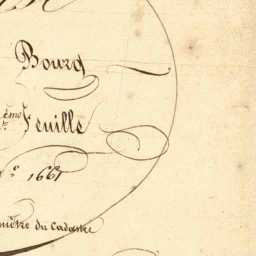 Bourg
eme Feuille
1661
du Cadastre